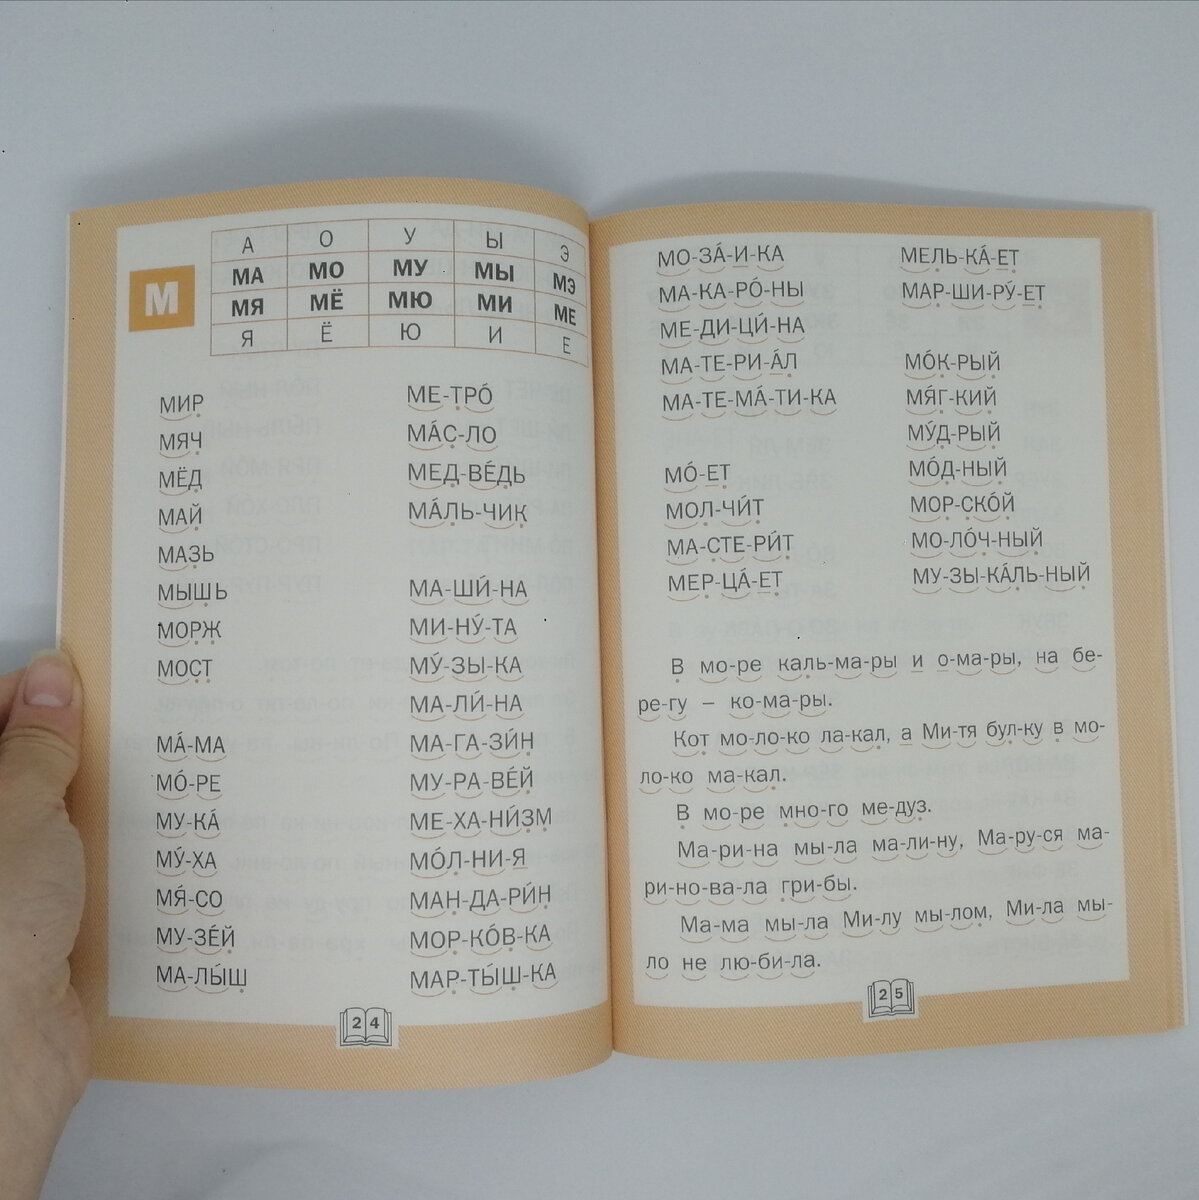 М
А О У Ы Э
МА МО МУ МЫ МЭ
МЯ МЁ МЮ МИ МЕ
Я Ё Ю И Е
МИР
МЯЧ
МЁД
МАЙ
МАЗЬ
МЫШЬ
МОРЖ
МОСТ
МА́-МА
МО́-РЕ
МУ-КА́
МУ́-ХА
МЯ́-СО
МУ-ЗЕ́Й
МА-ЛЫ́Ш
МЕ-ТРО́
МА́С-ЛО
МЕД-ВЕ́ДЬ
МА́ЛЬ-ЧИК
МА-ШИ́-НА
МИ-НУ́-ТА
МУ́-ЗЫ-КА
МА-ЛИ́-НА
МА-ГА-ЗИ́Н
МУ-РА-ВЕ́Й
МЕ-ХА-НИ́ЗМ
МО́Л-НИ-Я
МАН-ДА-РИ́Н
МОР-КО́В-КА
МАР-ТЫ́Ш-КА
24
МО-ЗА́-И-КА
МА-КА-РО́-НЫ
МЕ-ДИ-ЦИ́-НА
МА-ТЕ-РИ-А́Л
МА-ТЕ-МА́-ТИ-КА
МО́-ЕТ
МОЛ-ЧИ́Т
МА-СТЕ-РИ́Т
МЕР-ЦА́-ЕТ
МЕЛЬ-КА́-ЕТ
МАР-ШИ-РУ́-ЕТ
МО́К-РЫЙ
МЯ́Г-КИЙ
МУ́Д-РЫЙ
МО́Д-НЫЙ
МОР-СКО́Й
МО-ЛО́Ч-НЫЙ
МУ-ЗЫ-КА́ЛЬ-НЫЙ
В мо-ре каль-ма-ры и о-ма-ры, на бе-
ре-гу – ко-ма-ры.
Кот мо-ло-ко ла-кал, а Ми-тя бул-ку в мо-
ло-ко ма-кал.
В мо-ре мно-го ме-дуз.
Ма-ри-на мы-ла ма-ли-ну, Ма-ру-ся ма-
ри-но-ва-ла гри-бы.
Ма-ма мы-ла Ми-лу мы-лом, Ми-ла мы-
ло не лю-би-ла.
25